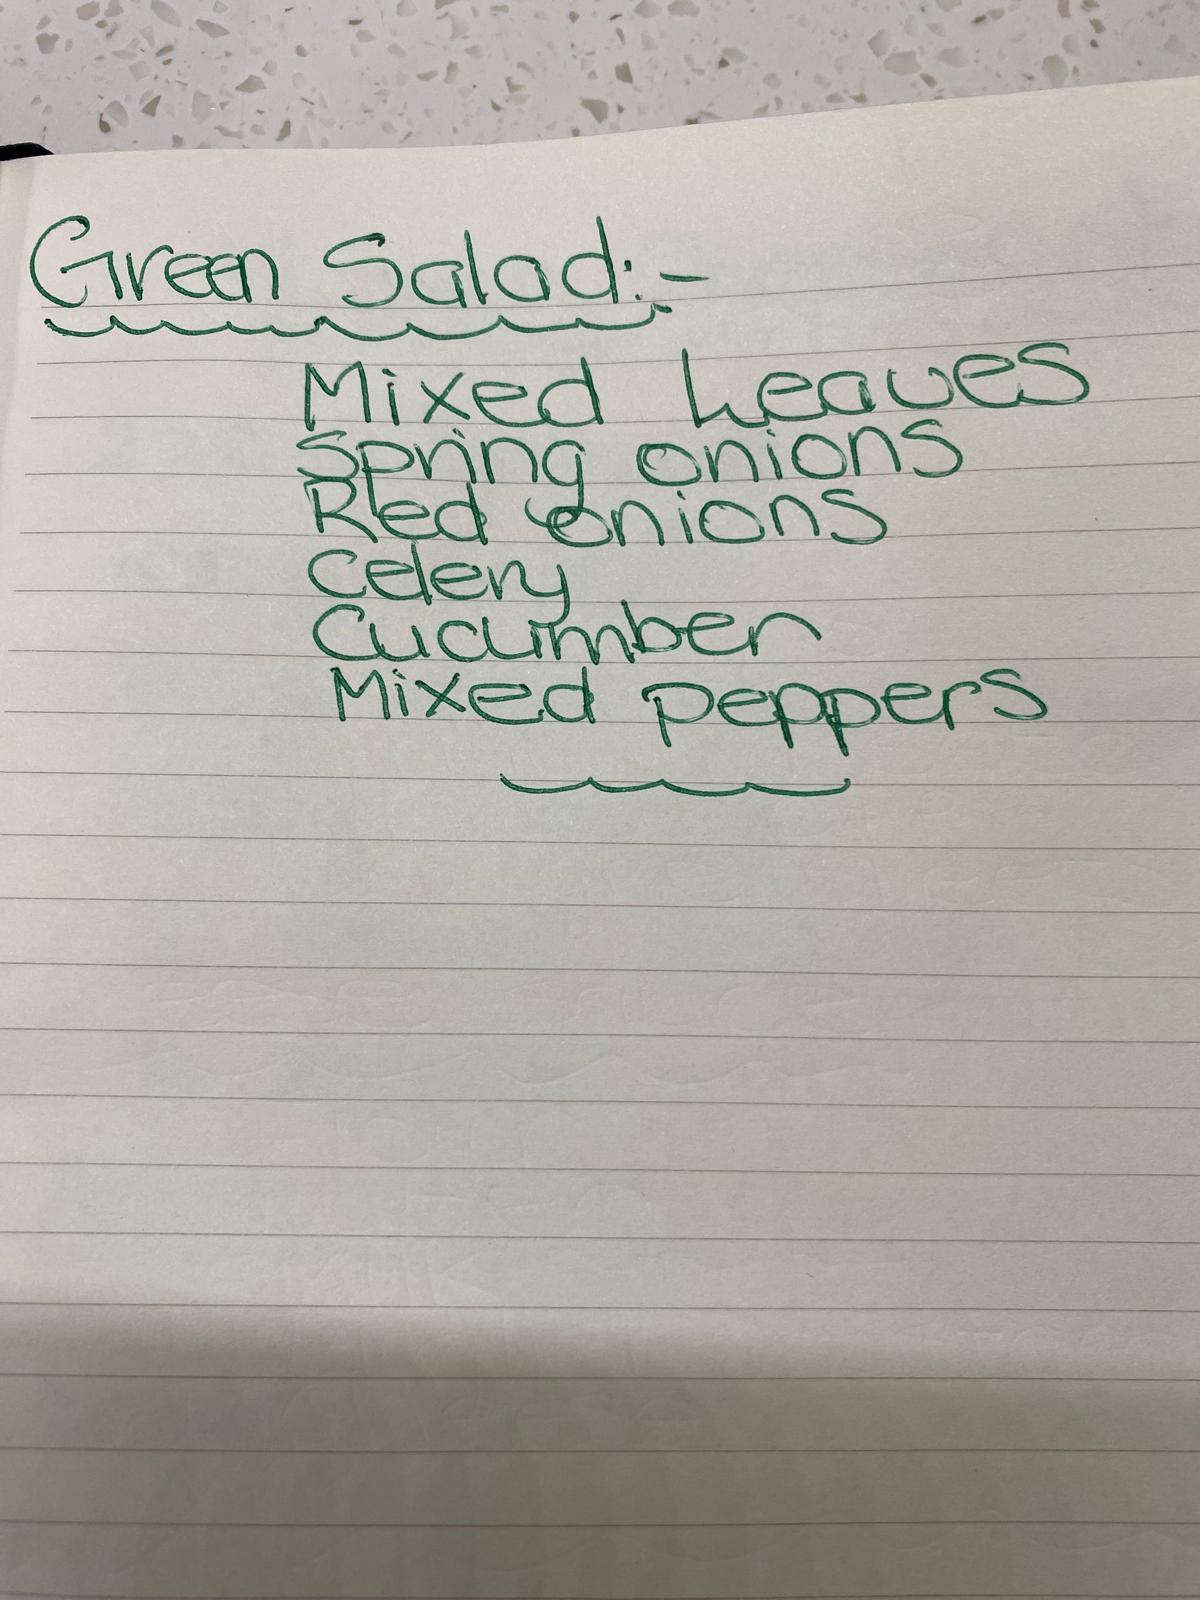 Green Salad:-
Mixed Leaves
Spring onions
Red onions
Celery
Cucumber
Mixed peppers